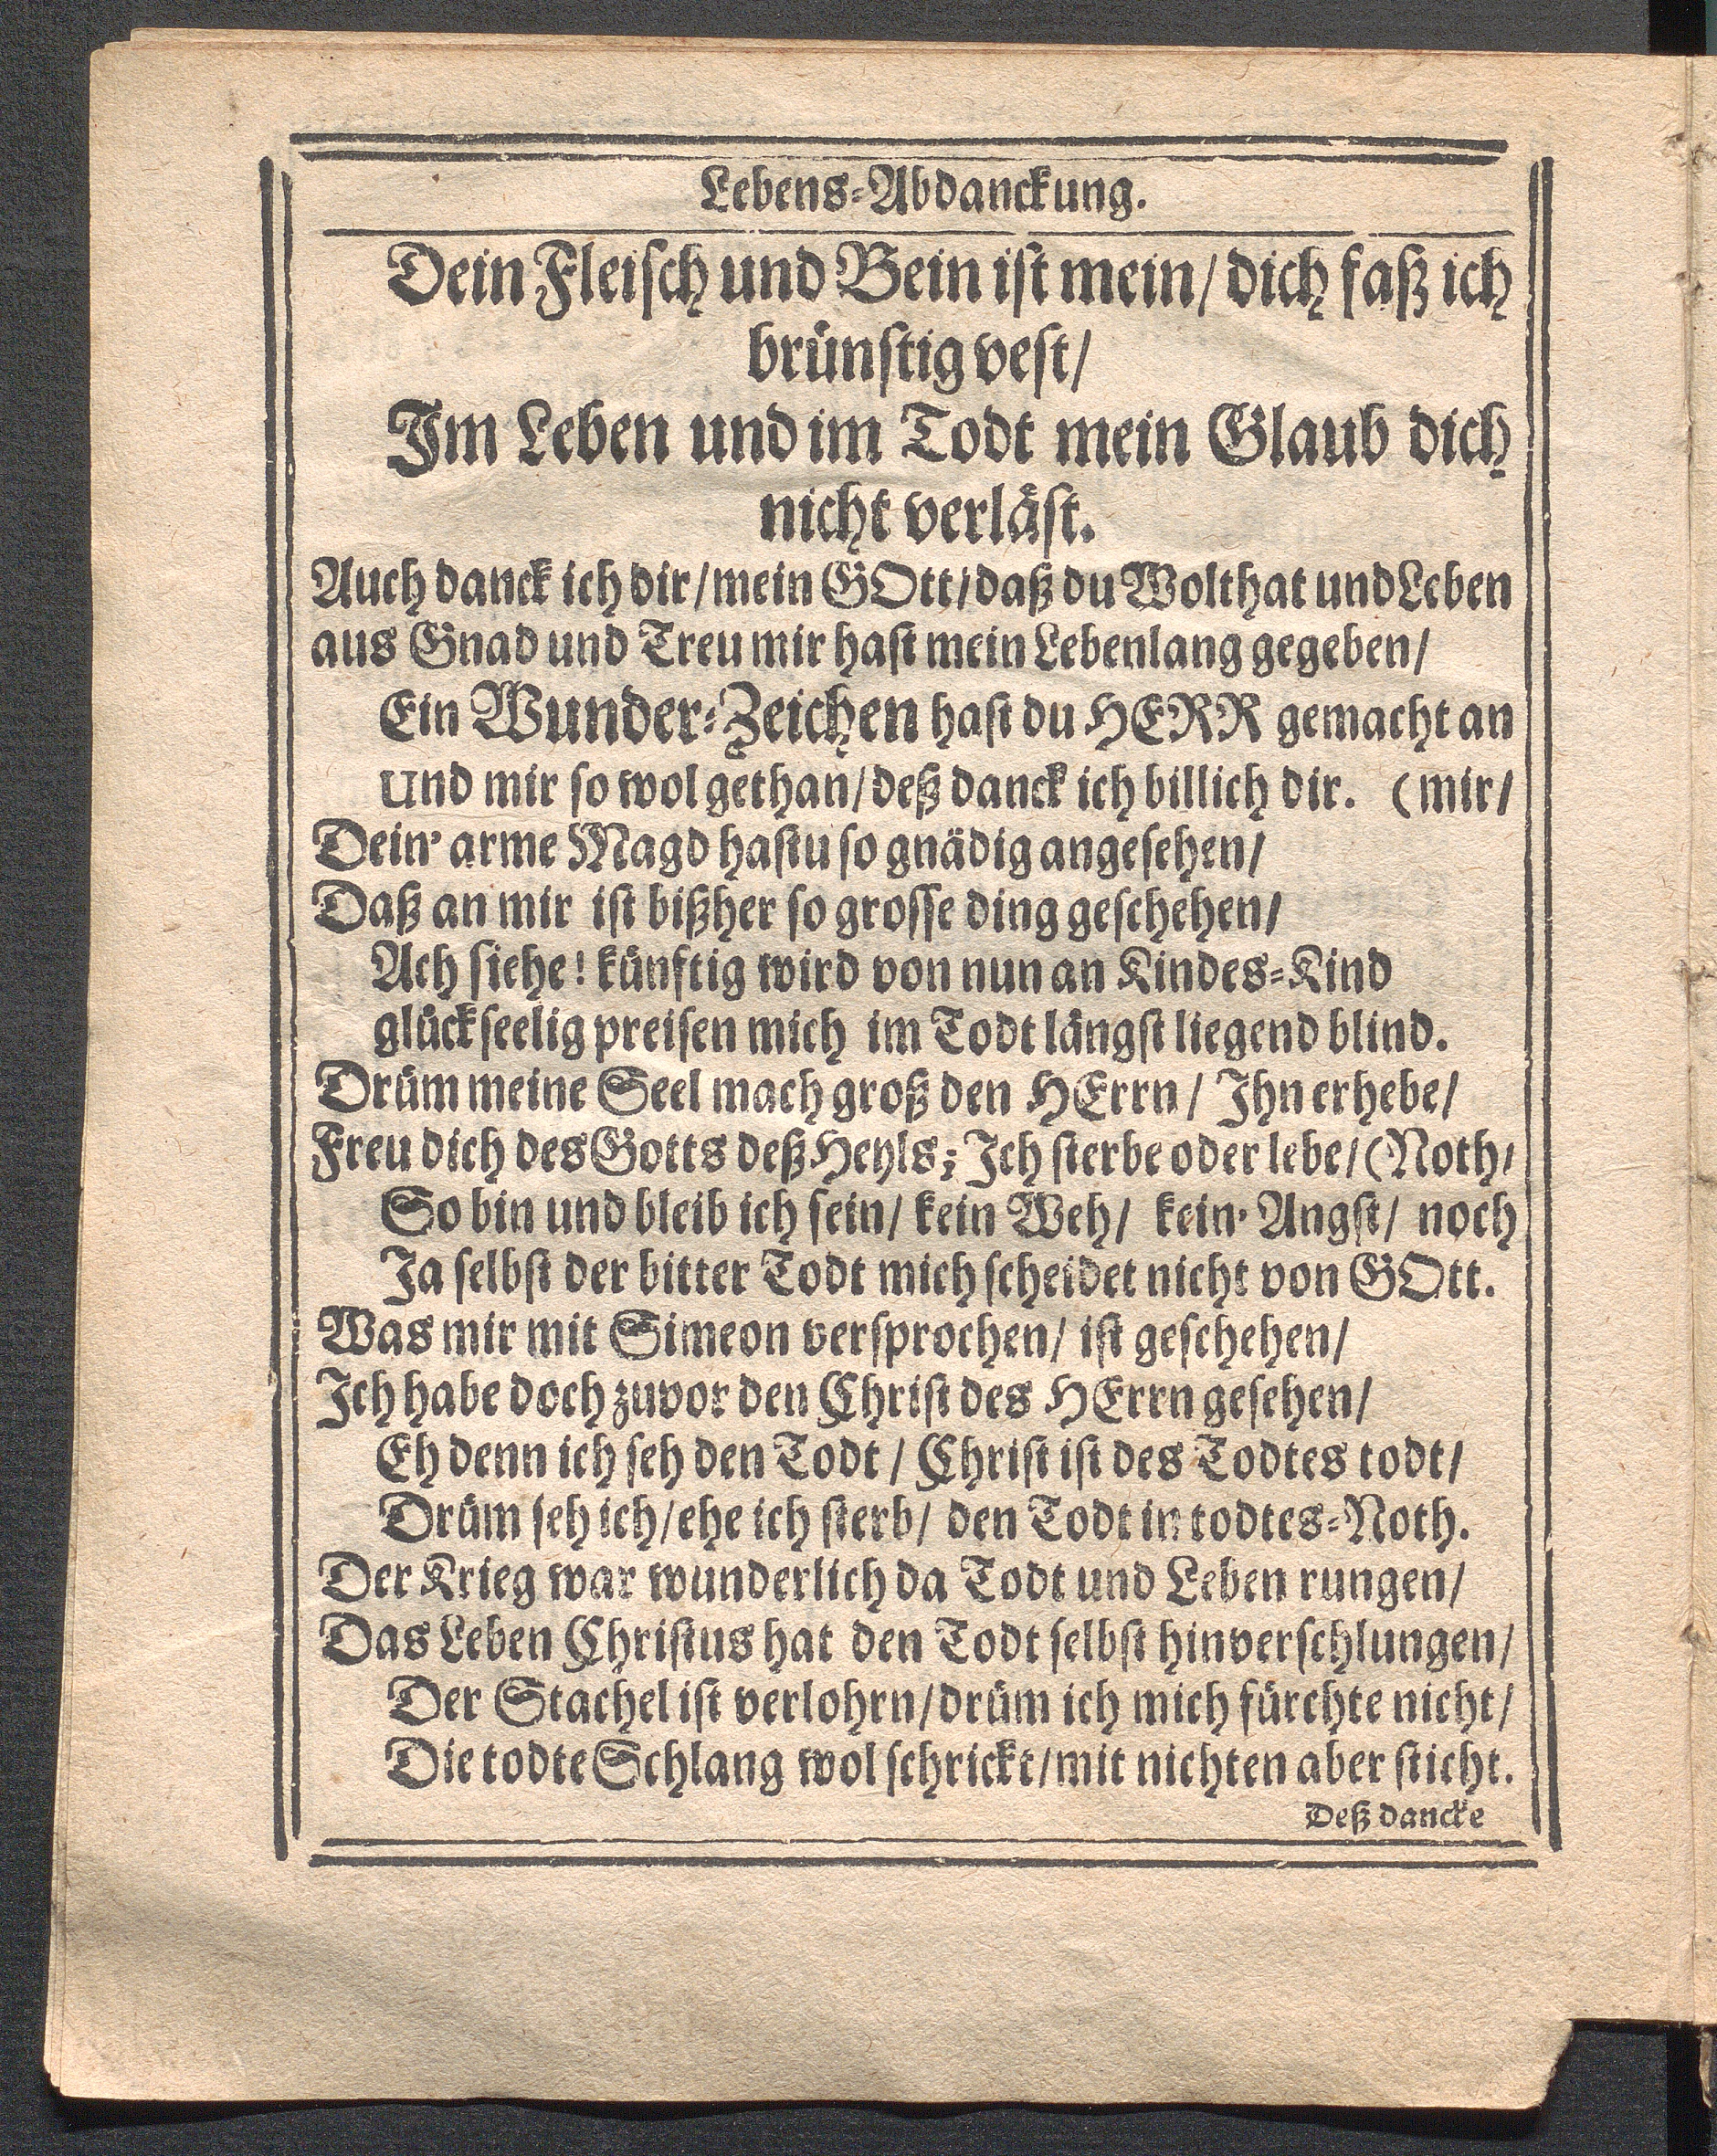 Lebens-Abdanckung.
Dein Fleisch und Bein ist mein/ dich faß ich
brünstig vest/
Im Leben und im Todt mein Glaub dich
nicht verläst.
Auch danck ich dir/ mein GOtt/ daß du Wolthat und Leben
aus Gnad und Treu mir hast mein Lebenlang gegeben/
Ein Wunder-Zeichen hast du HERR gemacht an
Und mir so wol gethan/ deß danck ich billich dir. (mir/
Dein' arme Magd hastu so gnädig angesehen/
Daß an mir ist bißher so grosse ding geschehen/
Ach siehe! künftig wird von nun an Kindes-Kind
glückseelig preisen mich im Todt längst liegend blind.
Drüm meine Seel mach groß den HErrn/ Ihn erhebe/
Freu dich des Gotts deß Heyls; Ich sterbe oder lebe/ (Noth/
So bin und bleib ich sein/ kein Weh/ kein' Angst/ noch
Ja selbst der bitter Todt mich scheidet nicht von GOtt.
Was mir mit Simeon versprochen/ ist geschehen/
Ich habe doch zuvor den Christ des HErrn gesehen/
Eh denn ich seh den Todt/ Christ ist des Todtes todt/
Drüm seh ich/ ehe ich sterb/ den Todt in todtes-Noth.
Der Krieg war wunderlich da Todt und Leben rungen/
Das Leben Christus hat den Todt selbst hinverschlungen/
Der Stachel ist verlohrn/ drüm ich mich fürchte nicht/
Die todte Schlang wol schrickt/ mit nichten aber sticht.
Deß dancke